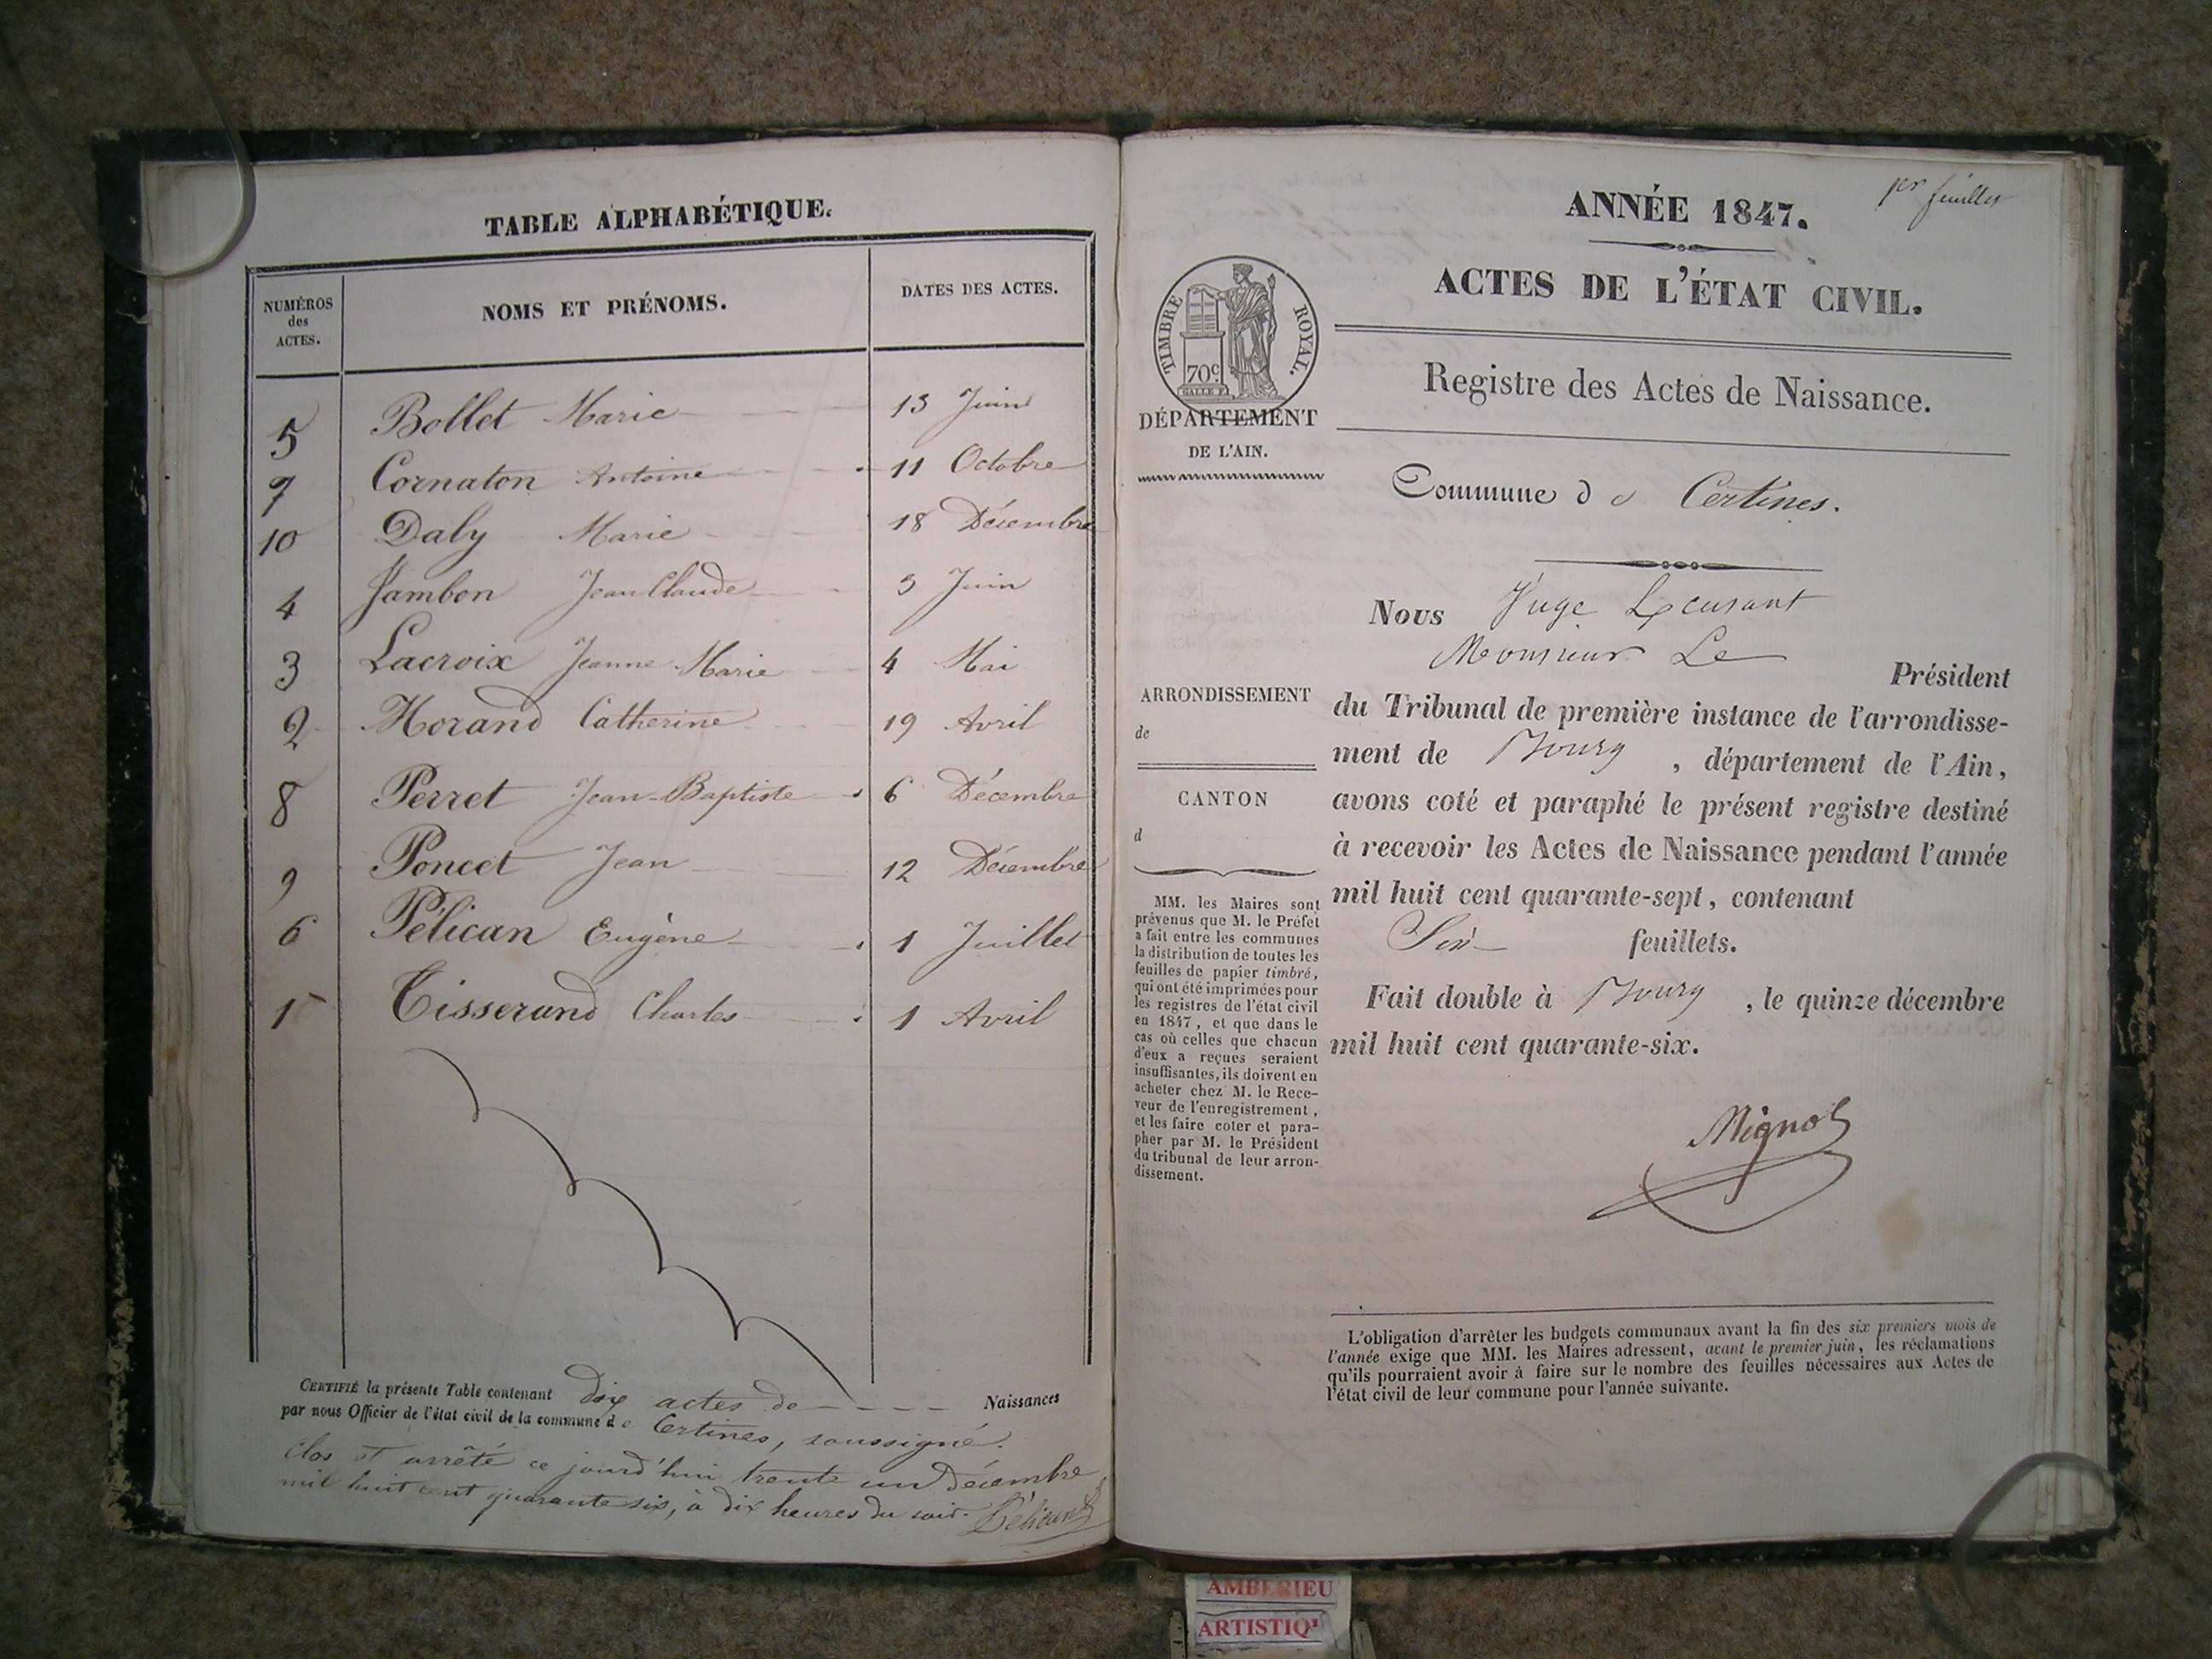 TABLE ALPHABÉTIQUE.
NUMÉROS des ACTES.
NOMS ET PRÉNOMS.
DATES DES ACTES.
5 Bollet Marie 13 Juin
7 Cornaton Antoine 11 Octobre
10 Daly Marie 18 Décembre
4 Jambon Jean Claude 3 Juin
3 Lacroix Jeanne Marie 4 Mai
2 Morand Catherine 19 Avril
8 Perret Jean-Baptiste 6 Décembre
9 Poncet Jean 12 Décembre
6 Pélican Eugène 1 Juillet
1 Tisserand Charles 1 Avril
CERTIFIÉ la présente Table contenant dix actes de Naissances
par nous Officier de l'état civil de la commune de Certines, soussigné.
Clos et arrêté ce jourd'hui trente un Décembre
mil huit cent quarante six, à dix heures du soir. Pélican
1er feuillet
ANNÉE 1847.
ACTES DE L'ÉTAT CIVIL.
TIMBRE ROYAL.
70c
DÉPARTEMENT
DE L'AIN.
Registre des Actes de Naissance.
Commune de Certines.
Nous Juge
Monsieur Le Président
du Tribunal de première instance de l'arrondisse-
ment de Bourg , département de l'Ain,
avons coté et paraphé le présent registre destiné
à recevoir les Actes de Naissance pendant l'année
mil huit cent quarante-sept, contenant
Six feuillets.
Fait double à Bourg , le quinze décembre
mil huit cent quarante-six.
Mignot
ARRONDISSEMENT
de
CANTON
d
MM. les Maires sont
prévenus que M. le Préfet
a fait entre les communes
la distribution de toutes les
feuilles de papier timbré,
qui ont été imprimées pour
les registres de l'état civil
en 1847, et que dans le
cas où celles que chacun
d'eux a reçues seraient
insuffisantes, ils doivent en
acheter chez M. le Rece-
veur de l'enregistrement,
et les faire coter et para-
pher par M. le Président
du tribunal de leur arron-
dissement.
L'obligation d'arrêter les budgets communaux avant la fin des six premiers mois de
l'année exige que MM. les Maires adressent, avant le premier juin, les réclamations
qu'ils pourraient avoir à faire sur le nombre des feuilles nécessaires aux Actes de
l'état civil de leur commune pour l'année suivante.
AMBERIEU
ARTISTIQ